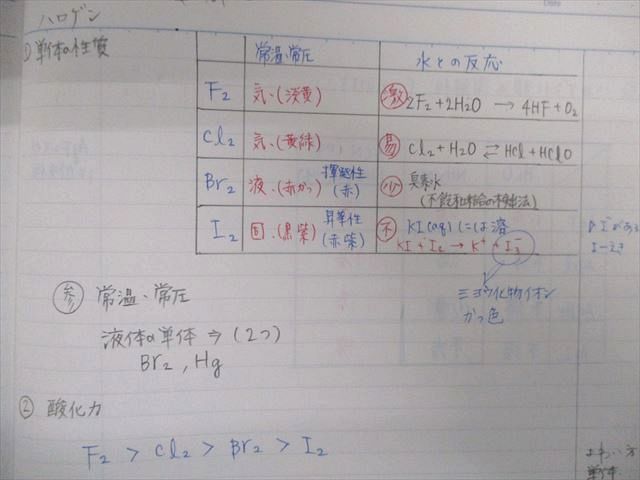 ハロゲン
① 単体の性質
常温・常圧 水との反応
F₂ 気・(淡黄) 激 2F₂+2H₂O → 4HF+O₂
Cl₂ 気・(黄緑) 易 Cl₂+H₂O ⇄ HCl+HClO
Br₂ 液・(赤かつ) 揮発性 (赤) 少 臭素水
(不飽和結合の検出法)
I₂ 固・(黒紫) 昇華性 (赤紫) 不 KI(aq)には溶
KI+I₂ → K⁺+I₃⁻
三ヨウ化物イオン
かっ色
参 常温・常圧
液体の単体 ⇒ (2つ)
Br₂, Hg
② 酸化力
F₂ > Cl₂ > Br₂ > I₂